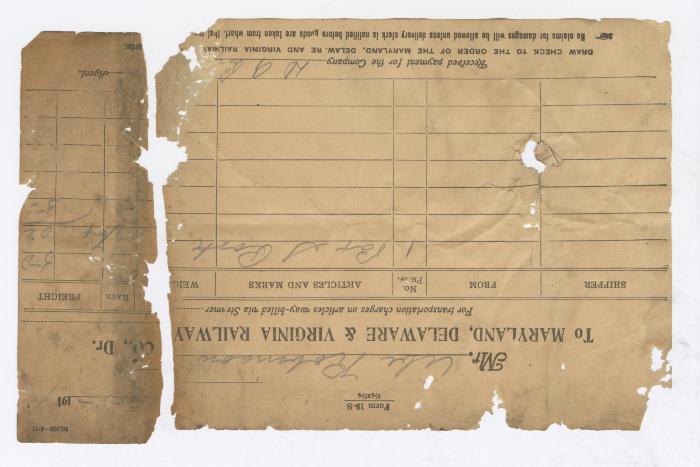 Form 19-S
Mr. Abe Robinson
191
To MARYLAND, DELAWARE & VIRGINIA RAILWAY Co., Dr.
For transportation charges on articles way-billed via Steamer
SHIPPER FROM No. PKGS. ARTICLES AND MARKS WEIG RATE FREIGHT
1 Bx S Pork 50
02
52
Received payment for the Company Agent.
DRAW CHECK TO THE ORDER OF THE MARYLAND, DELAWARE AND VIRGINIA RAILWAY
No claims for damages will be allowed unless delivery clerk is notified before goods are taken from wharf.
60,000—2-17